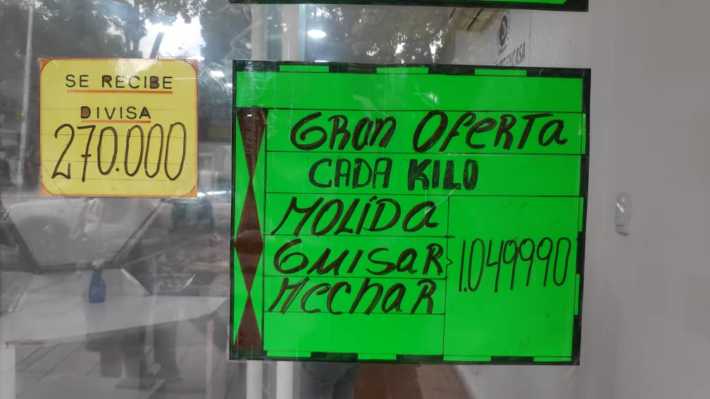 SE RECIBE
DIVISA
270.000
GRAN OFERTA
CADA KILO
MOLIDA
GUISAR
MECHAR
1.049990